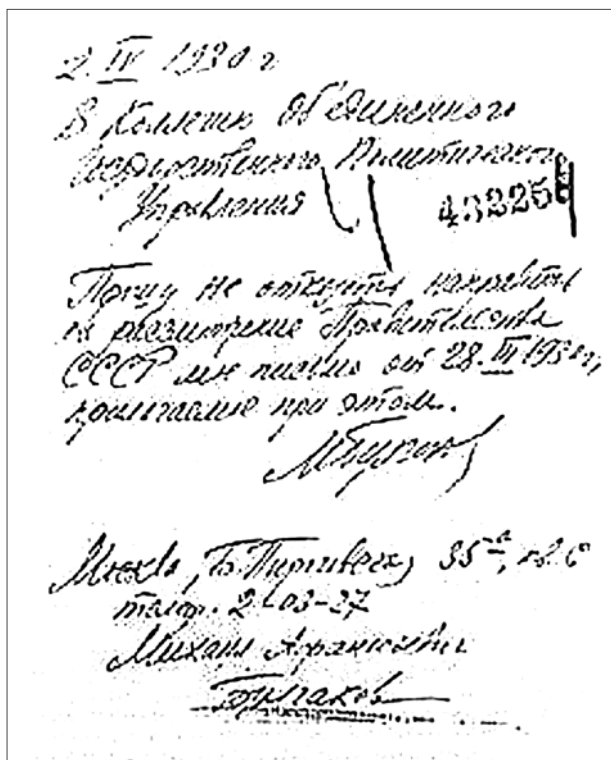 2.IV 1930 г
В Коллегию Об'единенного
Государственного Политического
Управления
43225
Прошу не отказать направить
на рассмотрение Правительства
СССР мое письмо от 28.III.1930 г.,
прилагаемое при этом.
МБулгаков
Москва, Б. Пироговская, 35-а, кв. 6
телеф. 2-03-27
Михаил Афанасьевич
Булгаков